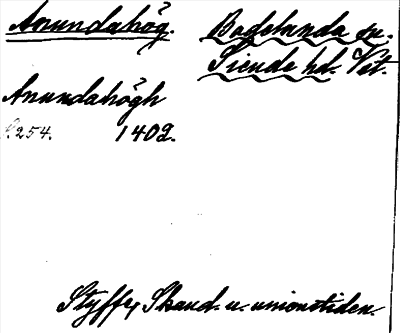 Anundahög.
Badelunda sn.
Siende hd. Vst.
Anundahögh
s. 254. 1402.
Styffe, Skand. u. unionstiden.